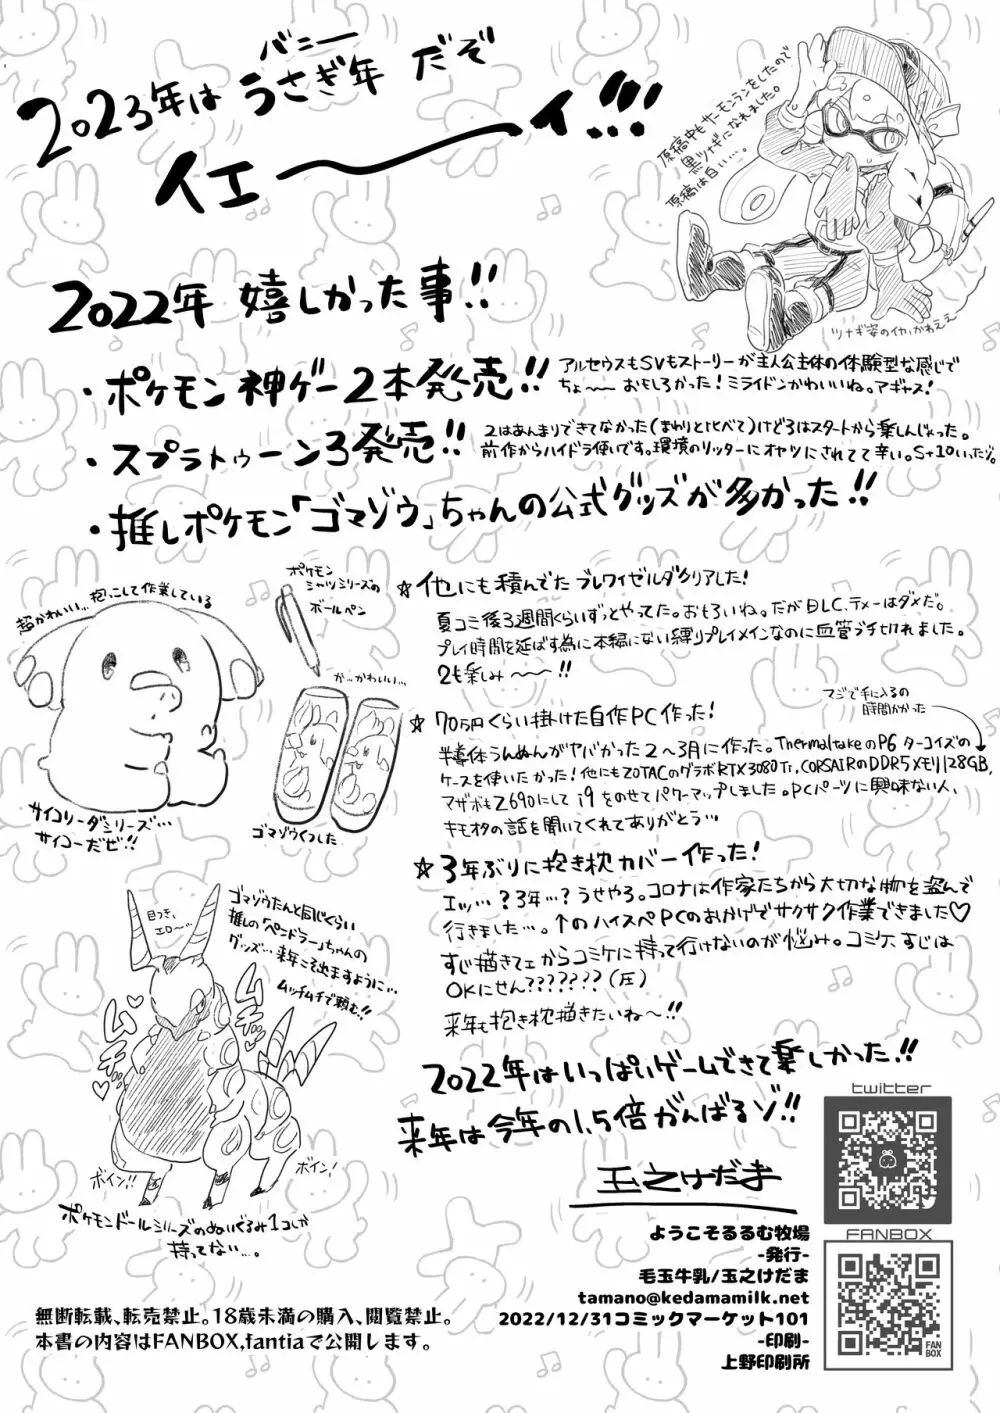 バニー
2023年は うさぎ年 だぞ
イエーーイ!!!
原稿中もサーモンランをしたので
黒ツナギになれました。
原稿は白い…。
ツナギ姿のイカ、かわええ
2022年 嬉しかった事!!
・ポケモン神ゲー2本発売!!
アルセウスもSVもストーリーが主人公主体の体験型な感じで
ちょ〜〜おもしろかった!ミライドンかわいいね。アギャス!
・スプラトゥーン3発売!!
2はあんまりできてなかった(まわりと比べて)けど3はスタートから楽しんじゃった。
前作からハイドラ使いです。環境のリッターにオヤツにされてて辛い。S+10いったゾ。
・推しポケモン「ゴマゾウ」ちゃんの公式グッズが多かった!!
超かわいい…抱っこして作業している
サイコソーダシリーズ…
サイコーだぜ!!
ポケモン
シャツシリーズの
ボールペン
か…かわいい…
ゴマゾウくつした
☆他にも積んでたブレワイゼルダクリアした!
夏コミ後3週間くらいずっとやってた。おもろいね。だがDLC、テメーはダメだ。
プレイ時間を延ばす為に本編にない縛りプレイメインなのに血管ブチ切れました。
2も楽しみ〜〜!!
☆70万円くらい掛けた自作PC作った!
マジで手に入るの
時間かかった
半導体うんぬんがヤバかった2〜3月に作った。ThermaltakeのP6 ターコイズの
ケースを使いたかった!他にもZOTACのグラボRTX3080Ti、CORSAIRのDDR5メモリ128GB、
マザボもZ690にしてi9をのせてパワーアップしました。PCパーツに興味ない人、
キモオタの話を聞いてくれてありがとう…
☆3年ぶりに抱き枕カバー作った!
エッ…?3年…?うせやろ。コロナは作家たちから大切な物を盗んで
行きました…。↑のハイスペPCのおかげでサクサク作業できました♡
すじ描きてェからコミケに持って行けないのが悩み。コミケ、すじは
OKにせん???????(圧)
来年も抱き枕描きたいね〜!!
目つき、
エロ〜…
ゴマゾウたんと同じくらい
推しの「ペンドラー」ちゃんの
グッズ…来年こそ出ますように…
ムッチムチで頼む!!
ムチ…♡
ムチ…♡
ボイン!!
ボイン!
ポケモンドールシリーズのぬいぐるみ1コしか
持てない…。
2022年はいっぱいゲームできて楽しかった!!
来年は今年の1.5倍がんばるゾ!!
玉之けだま
twitter
FANBOX
FAN
BOX
ようこそるるむ牧場
-発行-
毛玉牛乳/玉之けだま
tamano@kedamamilk.net
2022/12/31コミックマーケット101
-印刷-
上野印刷所
無断転載、転売禁止。18歳未満の購入、閲覧禁止。
本書の内容はFANBOX,fantiaで公開します。